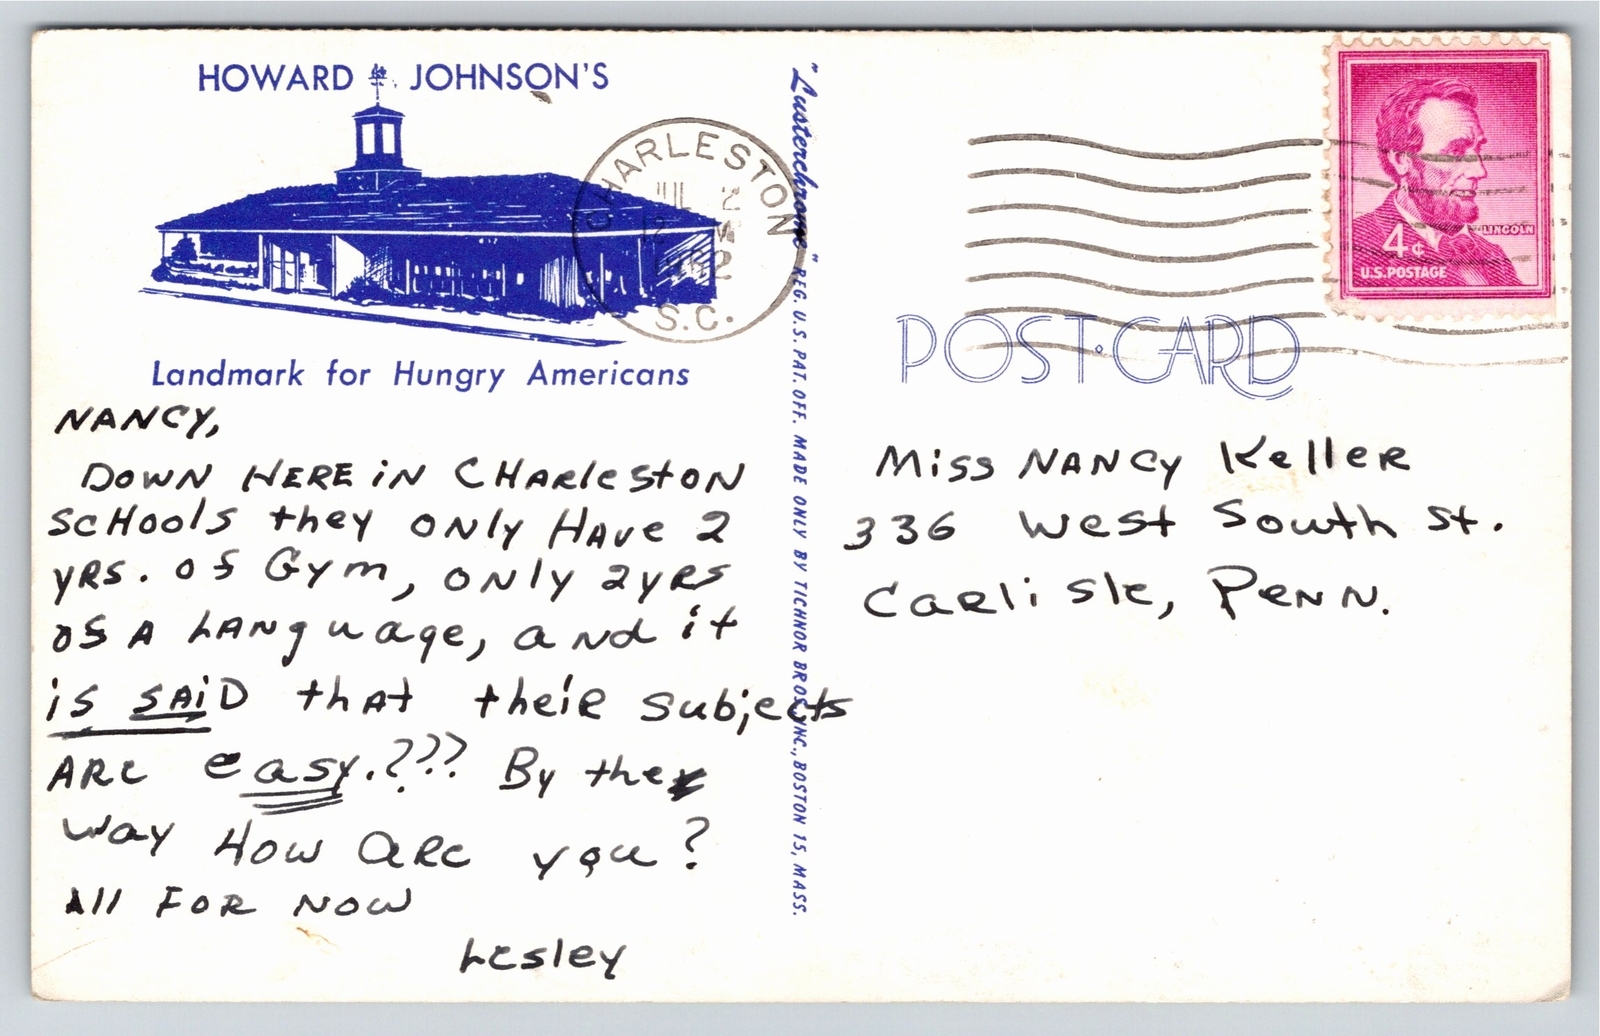 HOWARD JOHNSON'S
Landmark for Hungry Americans
NANCY,
DOWN HERE iN CHARleston
SCHools they ONly HAVE 2
YRS. of Gym, ONly 2yRS
of A LANguage, and it
is SAiD that theiR subjects
ARE easy.??? By the
way How ARE you?
All FOR NOW
Lesley
CHARLESTON
JUL 2
S.C.
"Lusterchrome" REG. U.S. PAT. OFF. MADE ONLY BY TICHNOR BROS., INC., BOSTON 15, MASS.
LINCOLN
4¢
U.S. POSTAGE
POST·CARD
Miss NANCY KelleR
336 West South St.
CaRlisle, PENN.